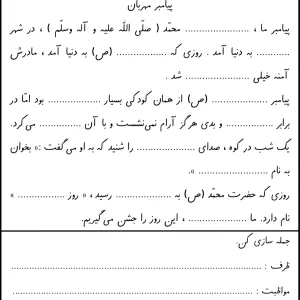 پیامبر مهربان
پیامبر ما ، ........................ محمّد ( صلّی اللّه علیه و آله وسلّم ) ، در شهر
............. به دنیا آمد . روزی که .................. (ص) به دنیا آمد ، مادرش
آمنه خیلی ........................ شد .
پیامبر .................... (ص) از همان کودکی بسیار .................... بود امّا در
برابر .................. و بدی هرگز آرام نمی‌نشست و با آن ................ می‌کرد.
یک شب در کوه ، صدای ........................ را شنید که به او می‌گفت :« بخوان
به نام ............................ ».
روزی که حضرت محمّد (ص) به ...................... رسید ، « روز .................. »
نام دارد. ما ...................... ، این روز را جشن می‌گیریم.
جمله سازی کن.
ظرف : ........................................................................
مواظبت : ........................................................................